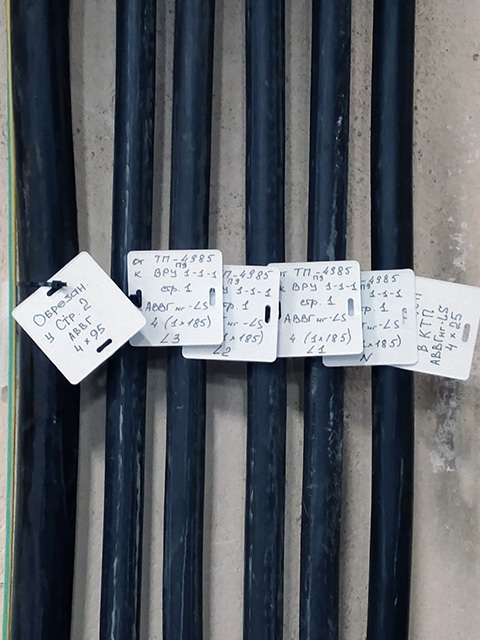 Обрезан.
у Стр. 2
АВВГ
4×95
от ТП-4985
ПЭ
к ВРУ 1-1-1
стр. 1
АВВГнг-LS
4 (1×185)
L3
ПЭ-4985
1-1-1
тр. 1
Гнг-LS
1×185)
L2
от ТП-4985
ПЭ
к ВРУ 1-1-1
стр. 1
АВВГнг-LS
4 (1×185)
L1
-4985
1-1-1
1
нг-LS
1×185)
N
В КТП
АВВГнг-LS
4×25